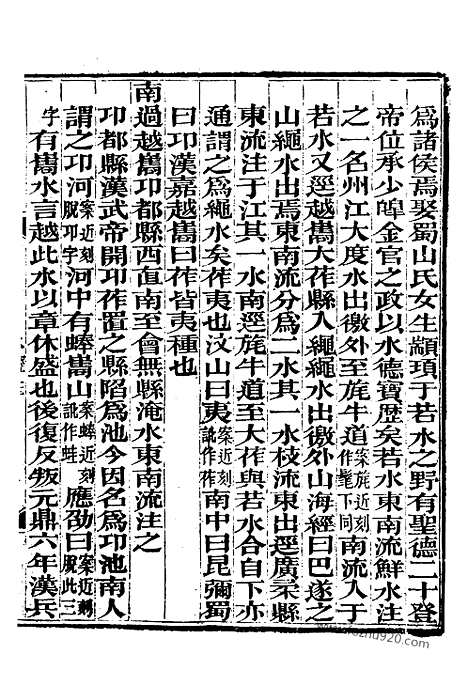 爲諸侯焉娶蜀山氏女生顓頊于若水之野有聖德二十登
帝位承少皡金官之政以水德寶歷矣若水東南流鮮水注
之一名州江大度水出徼外至旄牛道案旄近刻作髦下同南流入于
若水又逕越巂大莋縣入繩繩水出徼外山海經曰巴遂之
山繩水出焉東南流分爲二水其一水枝流東出逕廣柔縣
東流注于江其一水南逕旄牛道至大莋與若水合自下亦
通謂之爲繩水矣莋夷也汶山曰夷案近刻訛作莋南中曰昆彌蜀
曰卭漢嘉越巂曰莋皆夷種也
南過越巂卭都縣西直南至會無縣淹水東南流注之
卭都縣漢武帝開卭莋置之縣陷爲池今因名爲卭池南人
謂之卭河案近刻脫卭字河中有蜯巂山案蜯近刻訛作蛙應劭曰案近刻脫此三
字有巂水言越此水以章休盛也後復反叛元鼎六年漢兵